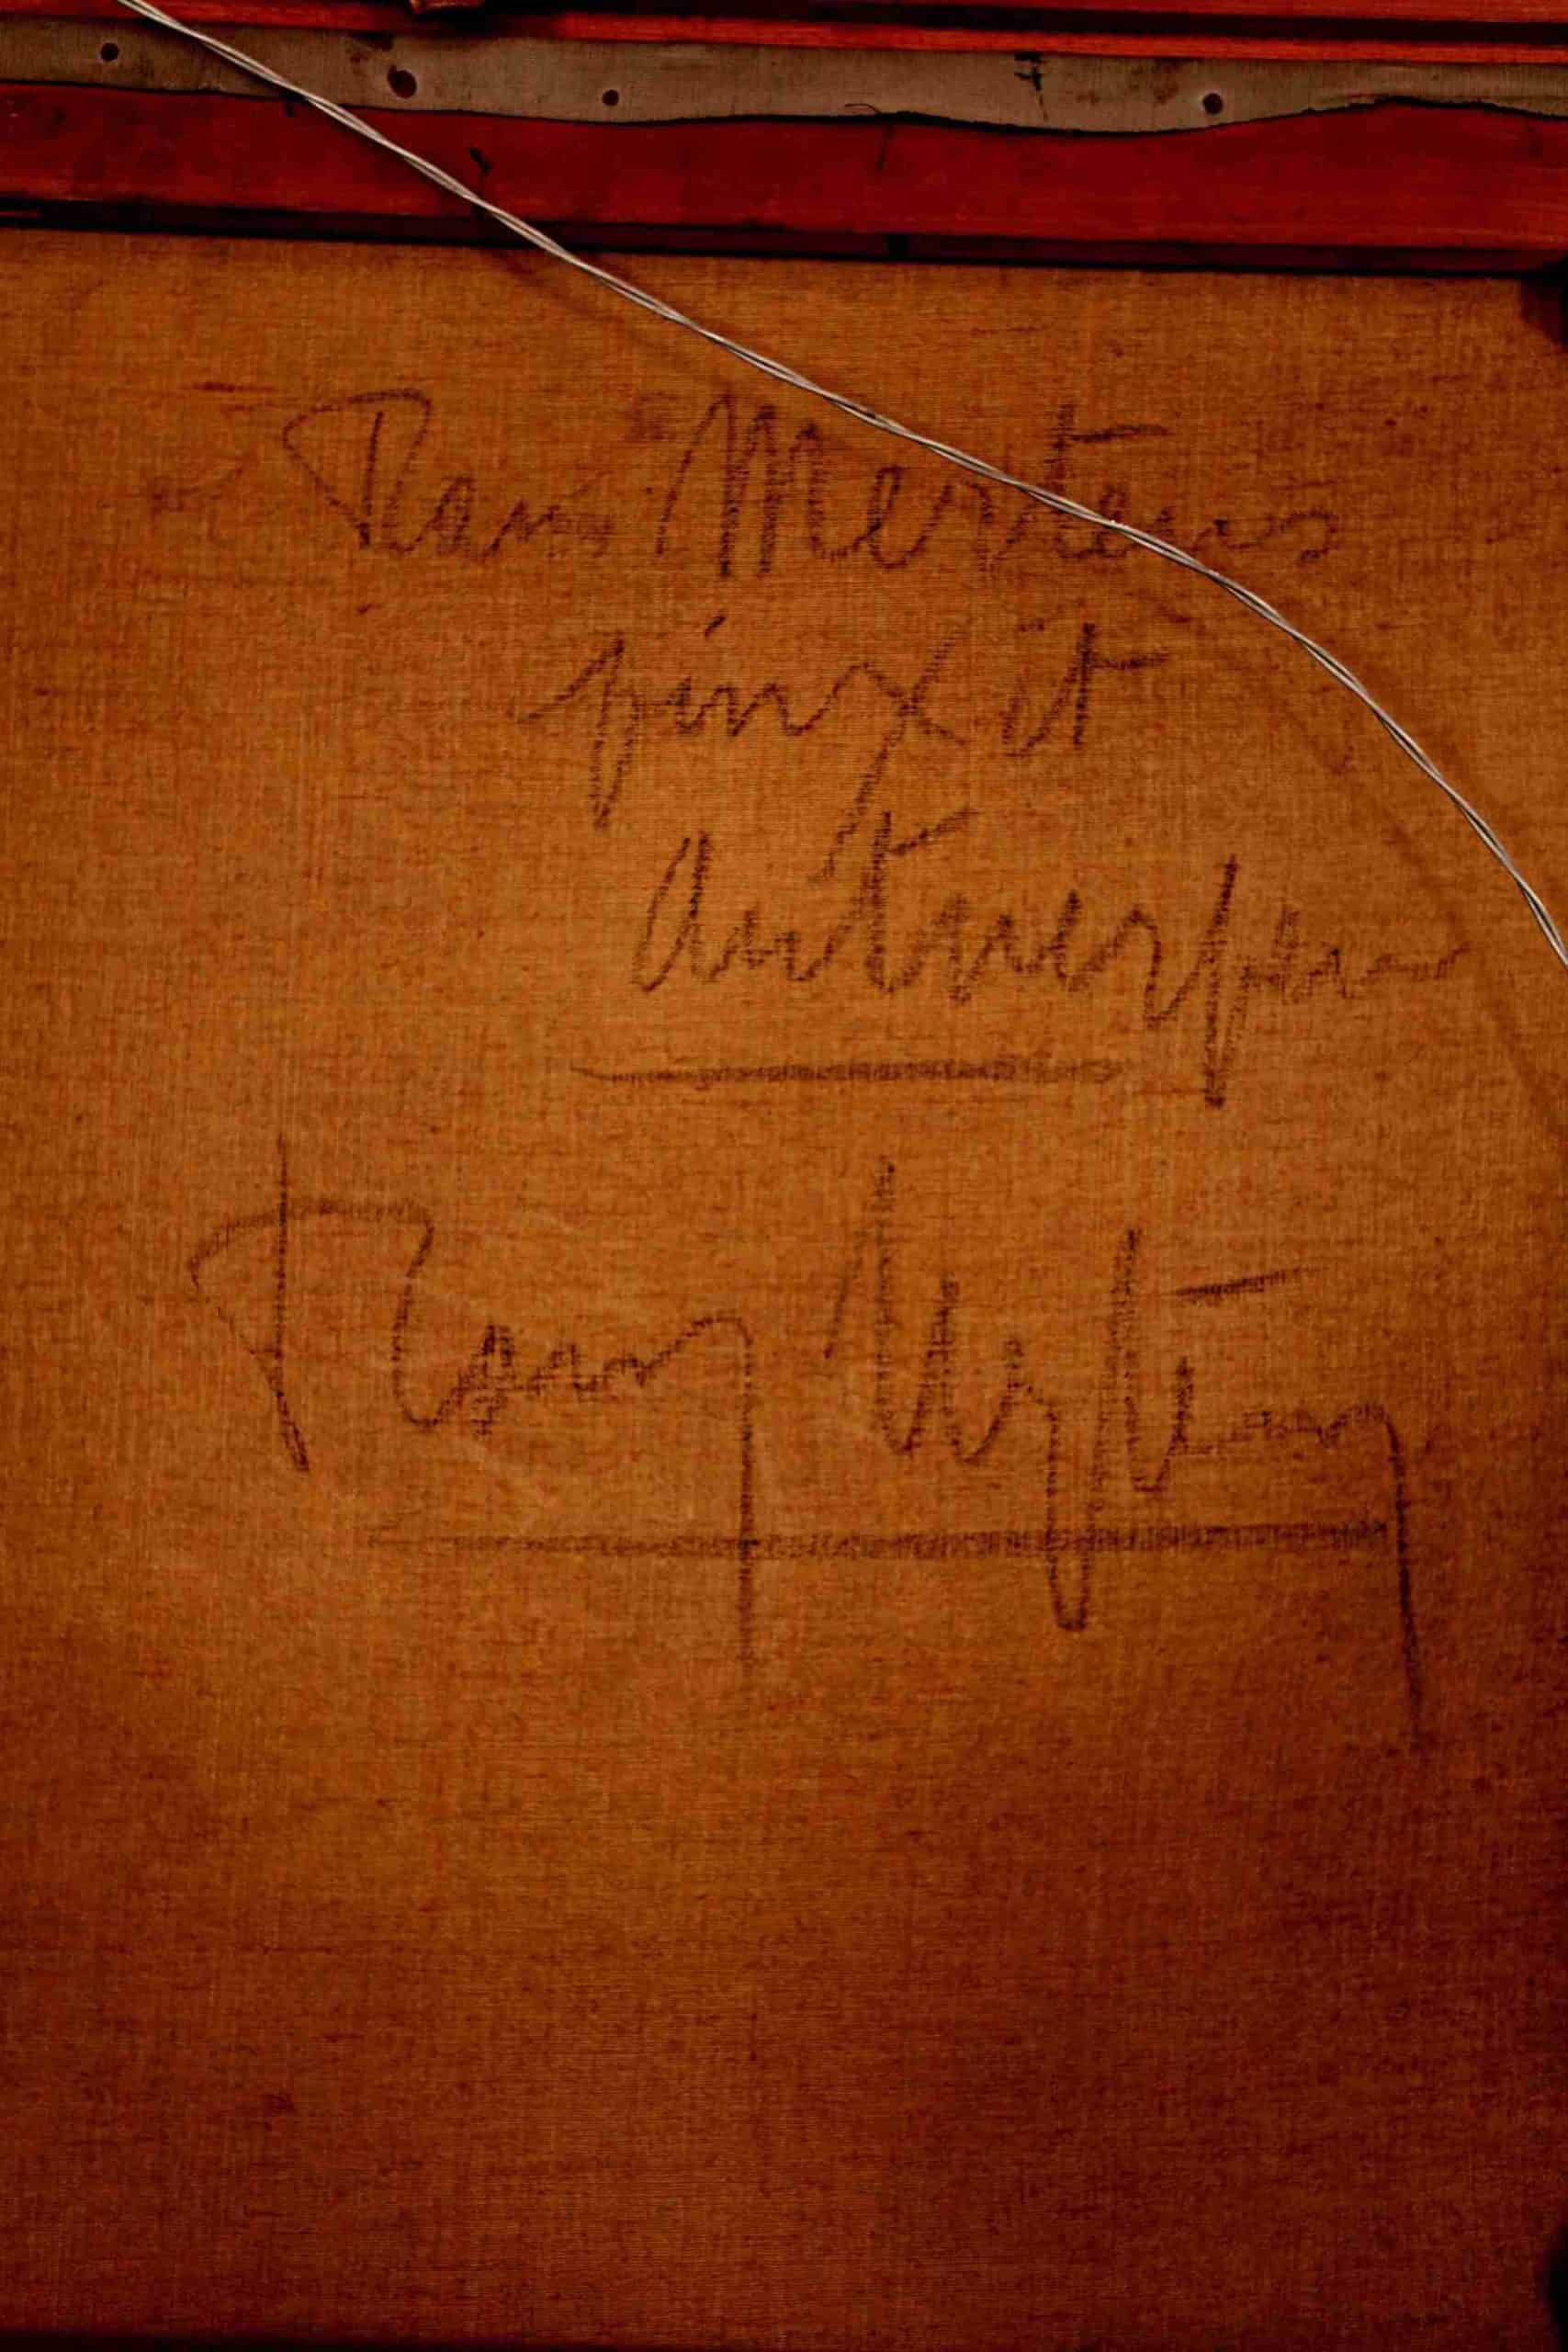 Mertens
pinxit
Antwerpen
Mertens